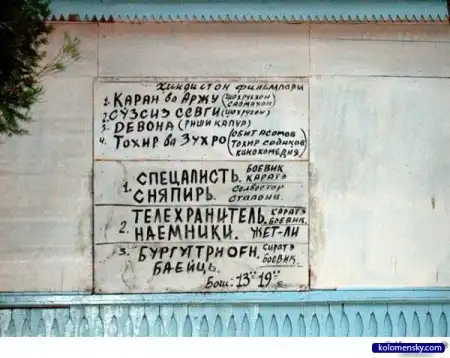 Хиндистон фильмлари
1. КАРАН ва АРЖУ (ШОХРУХХОН)
САЛМАХОН
2. СЎЗСИЗ СЕВГИ (ШОХРУХОН)
3. DЕВОНА (РИШИ КАПУР)
4. ТОХИР ва ЗУХРО (ОБИТ АСОМОВ
ТОХИР САДИКОВ
КИНОКОМЕДИЯ)
1. СПЕЦАЛИСТЬ. БОЕВИК
КАРАТЭ
СНЯПИРЬ. Селвестор
Сталони.
ТЕЛЕХРАНИТЕЛЬ. КАРАТЭ
БОЕВИК.
2. НАЕМНИКИ. ЖЕТ-ЛИ
3. БУРГУТТРНОГН. БОЕВИК.
БАЕЙЦЬ.
Бош: 13°° 19°°
kolomensky.com